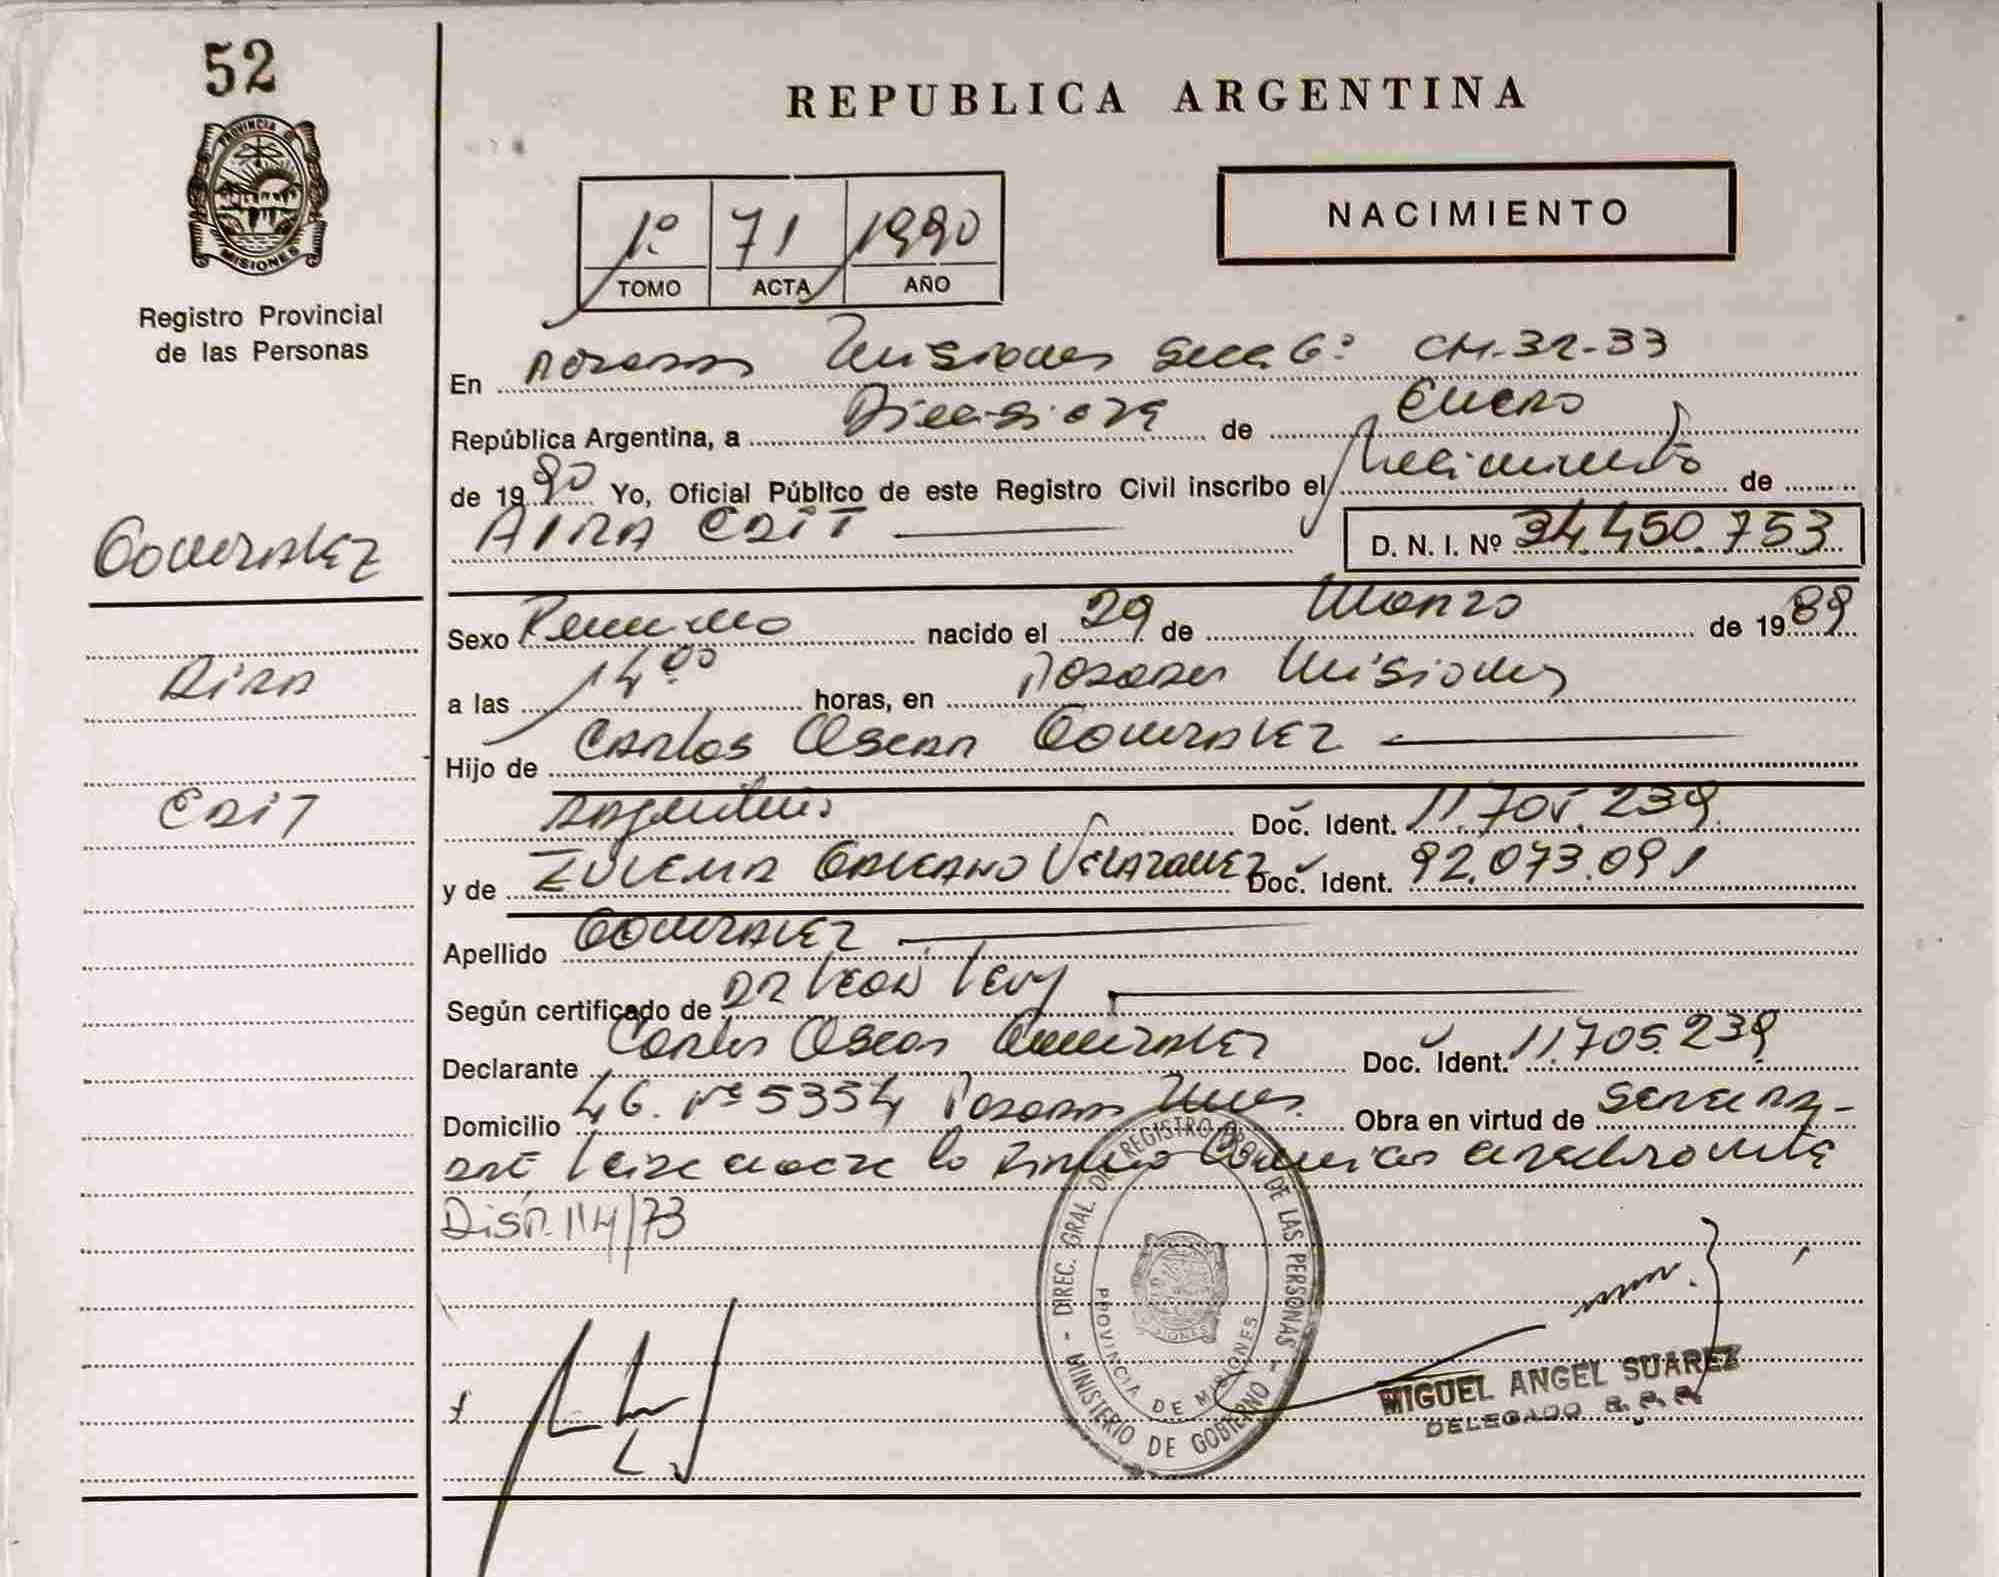 52
PROVINCIA DE
MISIONES
Registro Provincial
de las Personas
REPUBLICA ARGENTINA
NACIMIENTO
1º 71 1990
TOMO ACTA AÑO
En Posadas Misiones Secc 6º CH-32-33
República Argentina, a Diecisiete de Enero
de 1990 Yo, Oficial Público de este Registro Civil inscribo el Nacimiento de
AIRA EDIT
D. N. I. Nº 34.450.753
Gonzalez
Aira
Edit
Sexo Femenino nacido el 29 de Marzo de 1989
a las 14⁰⁰ horas, en Posadas Misiones
Hijo de Carlos Oscar Gonzalez
Argentino Doc. Ident. 11.705.239
y de ZULEMA GALEANO VELAZQUEZ Doc. Ident. 92.073.091
Apellido Gonzalez
Según certificado de DR Leon Levy
Declarante Carlos Oscar Gonzalez Doc. Ident. 11.705.239
Domicilio 46. Nº 5354 Posadas Mnes. Obra en virtud de
Disp. 114/73
DIREC. GRAL. DE REGISTRO PROV. DE LAS PERSONAS
PROVINCIA DE MISIONES
MISIONES
MINISTERIO DE GOBIERNO
MIGUEL ANGEL SUAREZ
DELEGADO